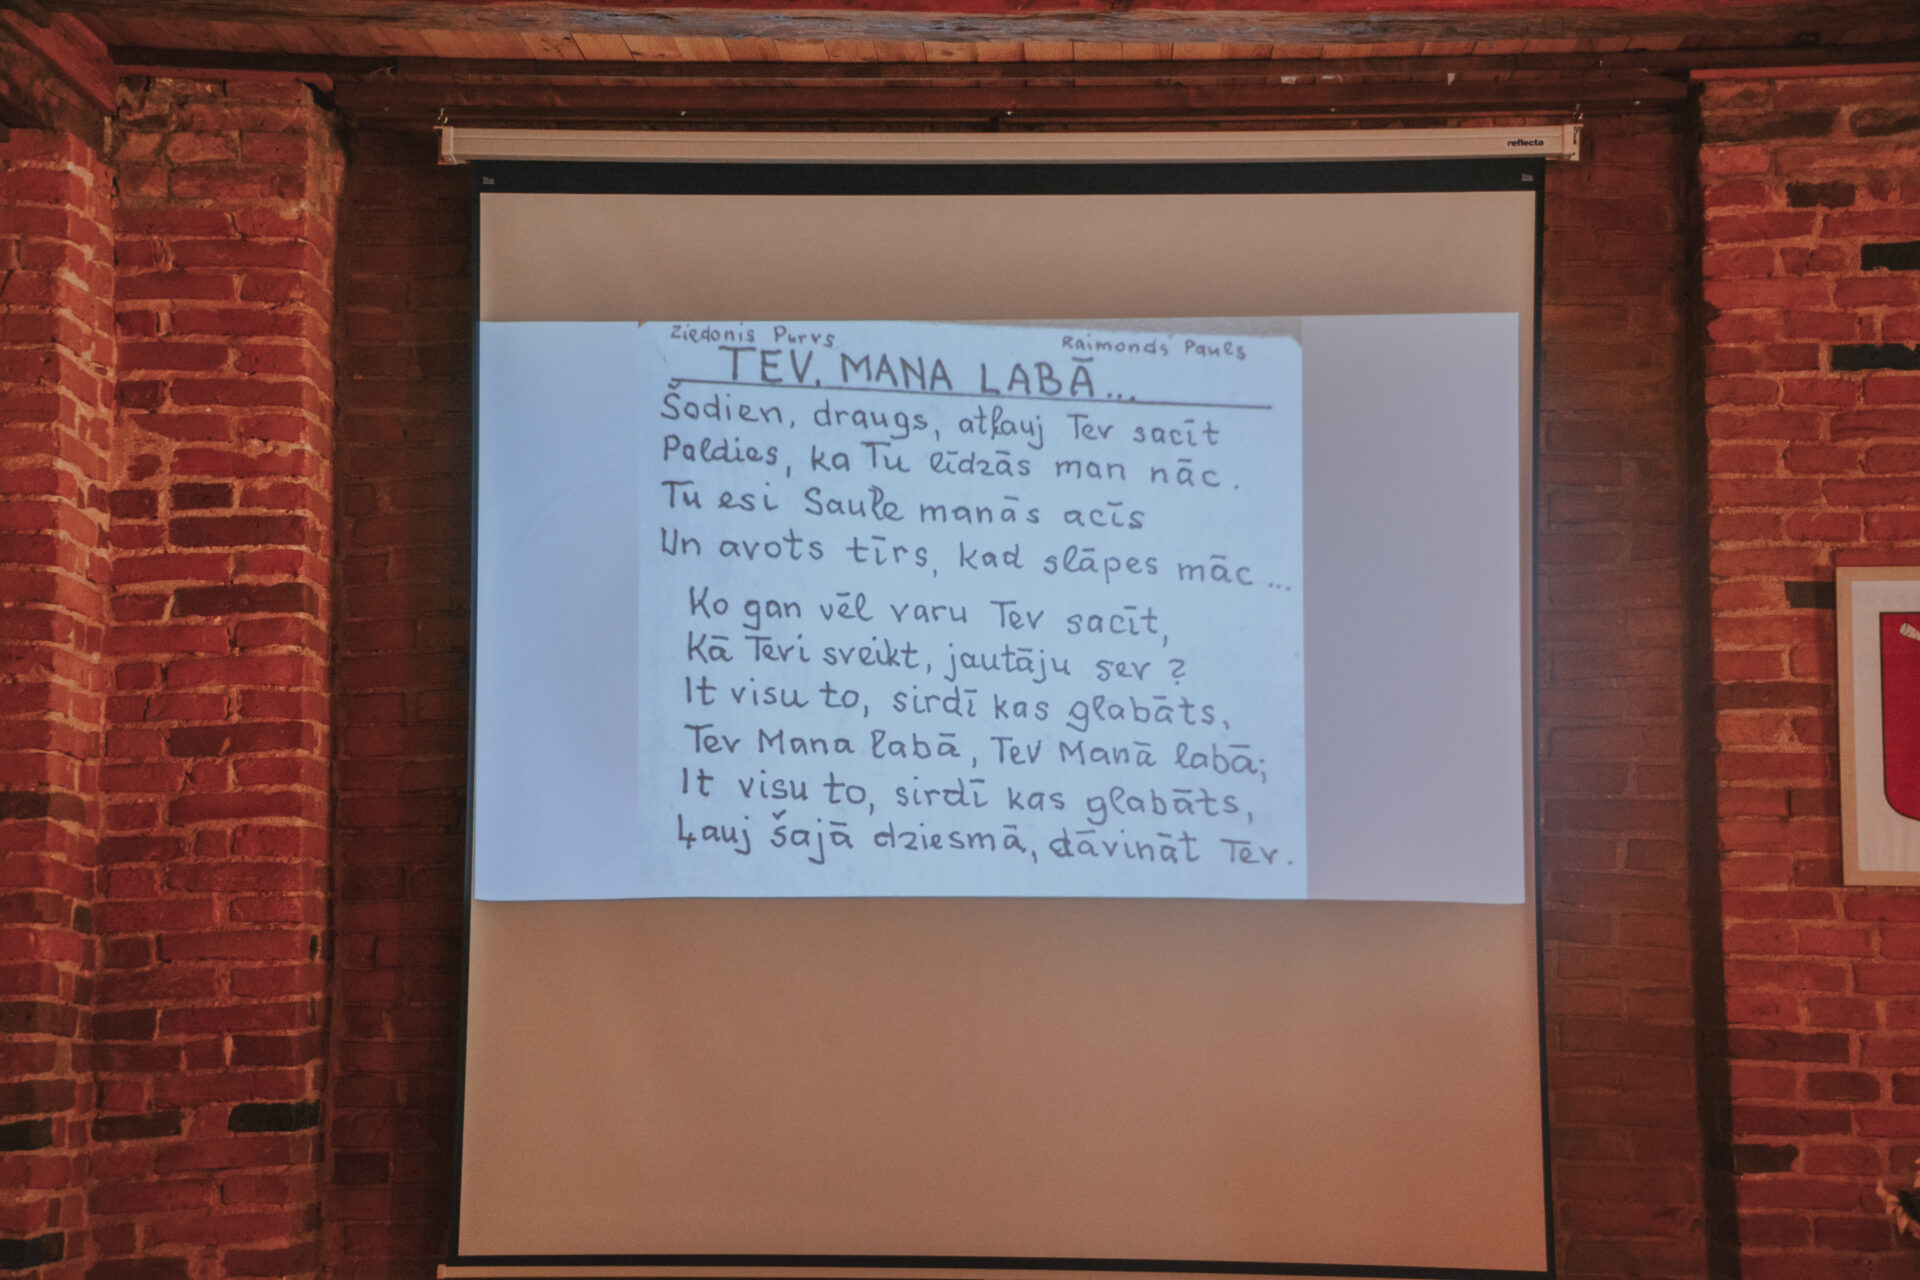 reflecta
Ziedonis Purvs Raimonds Pauls
TEV, MANA LABĀ...
Šodien, draugs, atļauj Tev sacīt
Paldies, ka Tu līdzās man nāc.
Tu esi Saule manās acīs
Un avots tīrs, kad slāpes māc...
Ko gan vēl varu Tev sacīt,
Kā Tevi sveikt, jautāju sev?
It visu to, sirdī kas glabāts,
Tev Mana labā, Tev Manā labā;
It visu to, sirdī kas glabāts,
Ļauj šajā dziesmā, dāvināt Tev.